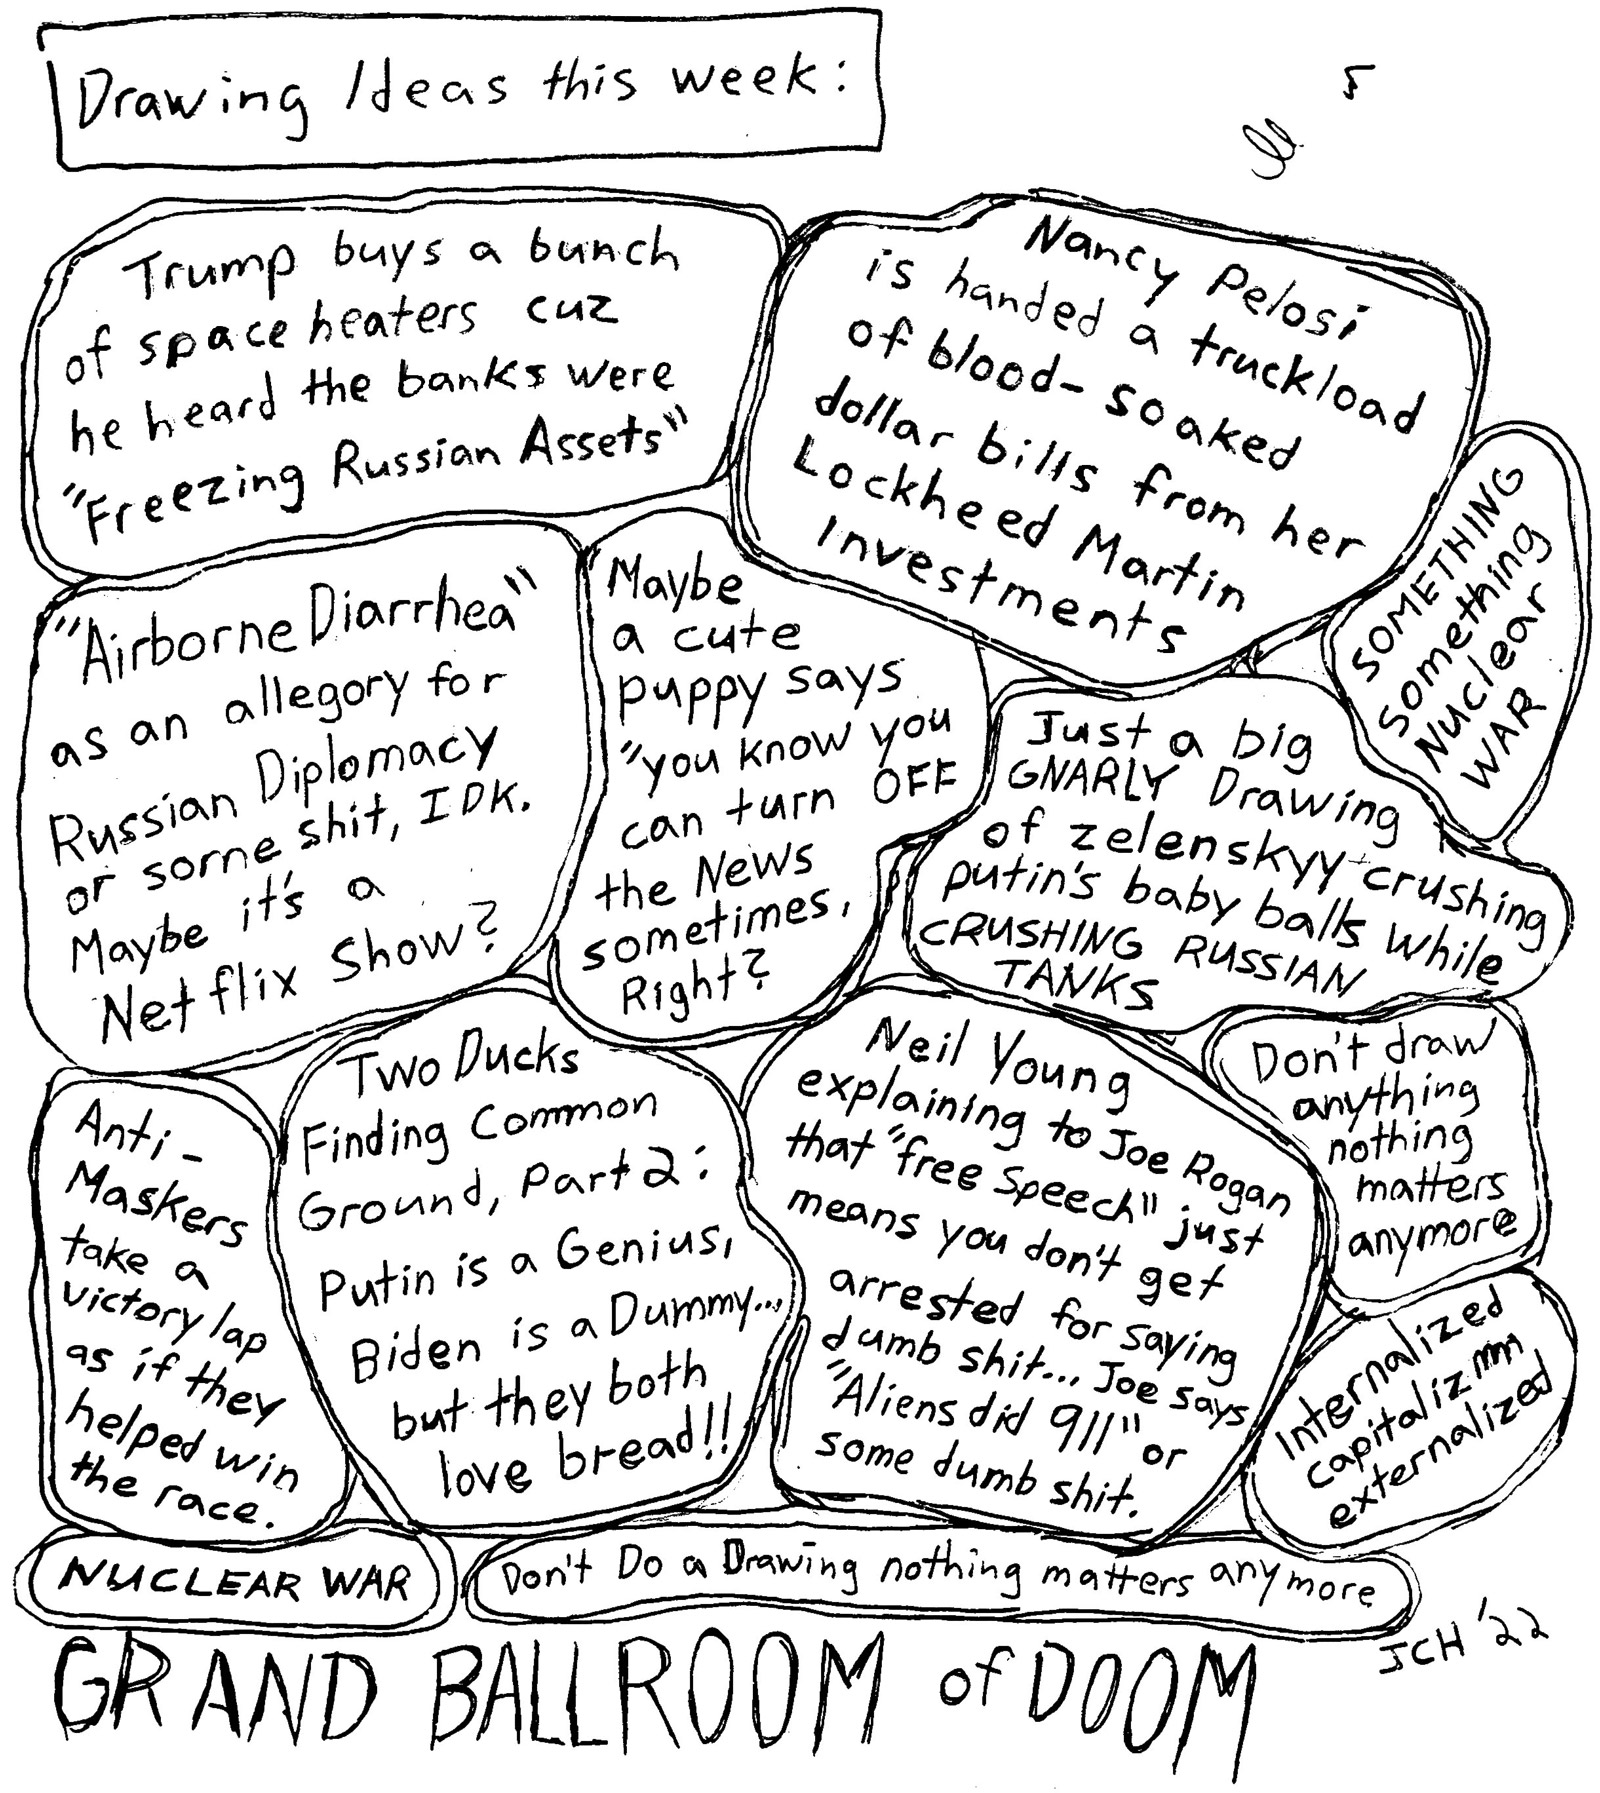 Drawing Ideas this week:
Trump buys a bunch
of space heaters cuz
he heard the banks were
"Freezing Russian Assets"
Nancy Pelosi
is handed a truckload
of blood-soaked
dollar bills from her
Lockheed Martin
Investments
SOMETHING
Something
Nuclear
WAR
"Airborne Diarrhea"
as an allegory for
Russian Diplomacy
or some shit, IDK.
Maybe it's a
Netflix Show?
Maybe
a cute
puppy says
"you know you
can turn OFF
the News
sometimes,
Right?
Just a big
GNARLY Drawing
of zelenskyy crushing
putin's baby balls while
CRUSHING RUSSIAN
TANKS
Anti-
Maskers
take a
victory lap
as if they
helped win
the race.
Two Ducks
Finding Common
Ground, Part 2:
Putin is a Genius,
Biden is a Dummy...
but they both
love bread!!
Neil Young
explaining to Joe Rogan
that "free Speech" just
means you don't get
arrested for saying
dumb shit... Joe says
"Aliens did 911" or
some dumb shit.
Don't draw
anything
nothing
matters
anymore
Internalized
capitalizmm
externalized
NUCLEAR WAR
Don't Do a Drawing nothing matters anymore
JCH '22
GRAND BALLROOM of DOOM